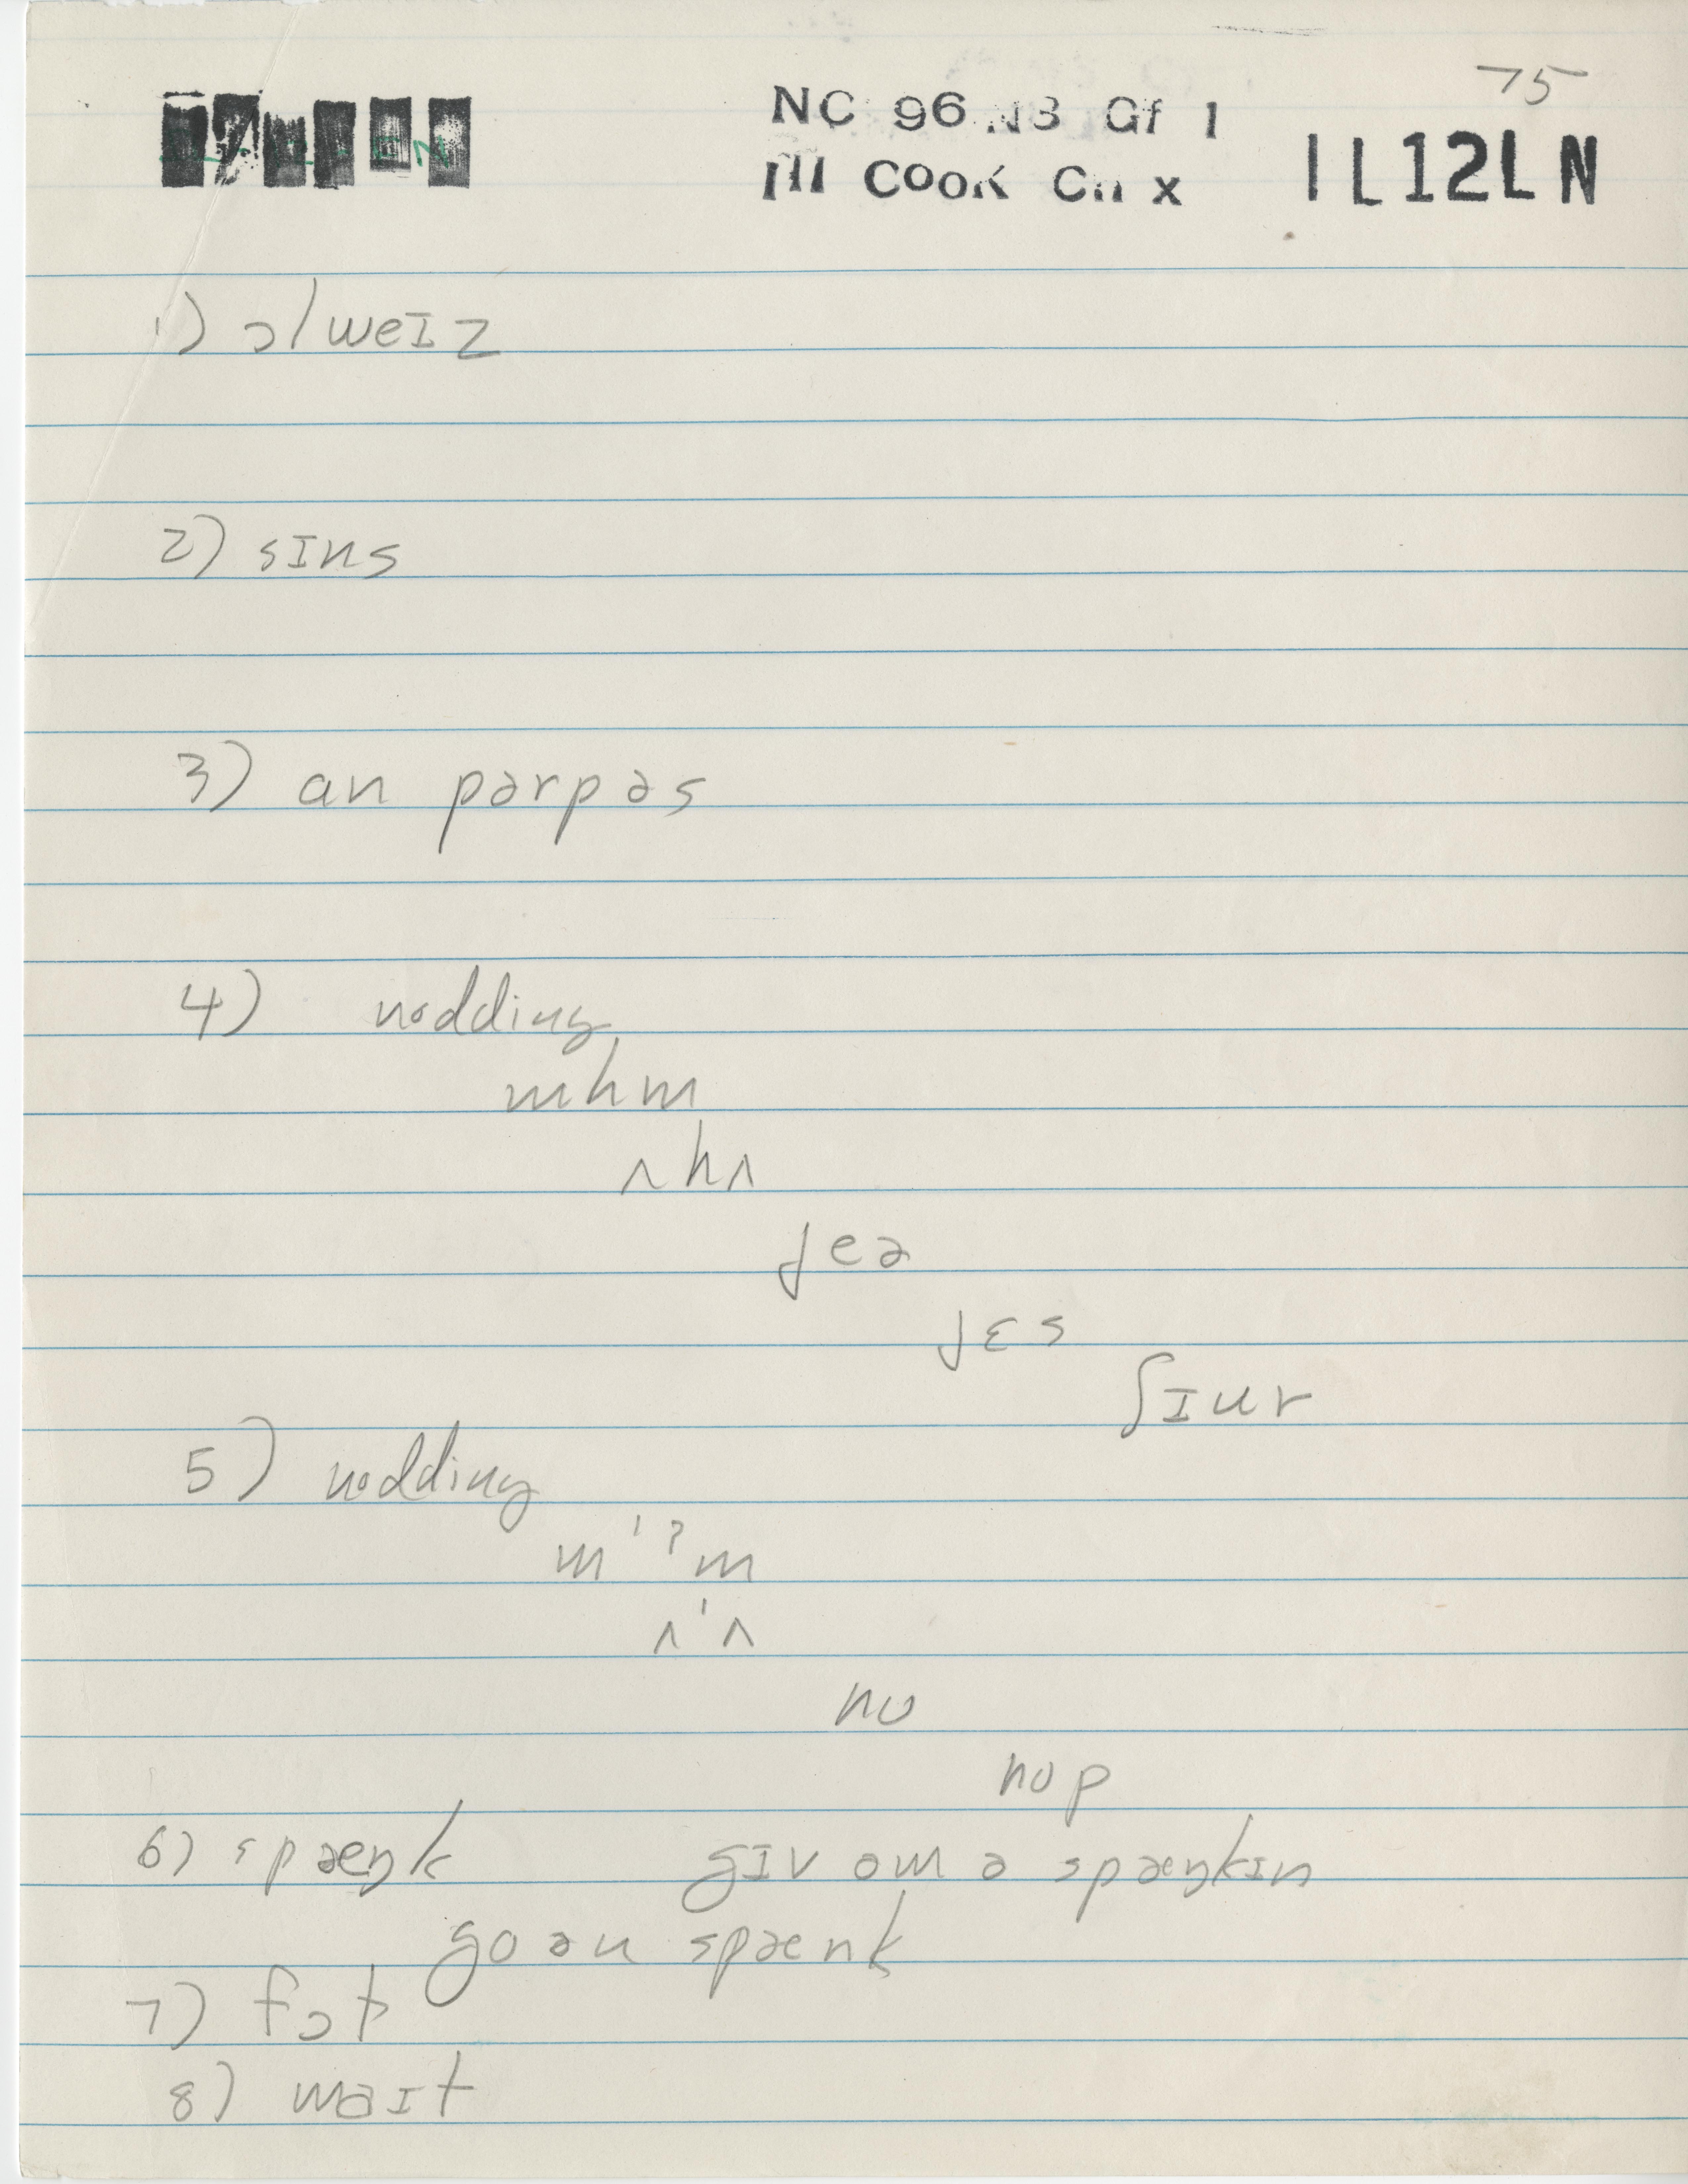 75
NC 96 N3 Gf 1
Ill Cook Cn x
IL12LN
1) ɔlweɪz
2) sɪns
3) an pərpəs
4) nodding
mhm
ʌhʌ
jeə
jɛs
ʃɪur
5) nodding
m'ˀm
ʌ'ʌ
no
nop
6) spæŋk gɪv əm ə spæŋkɪn
go ən spænk
7) fɔt
8) maɪt